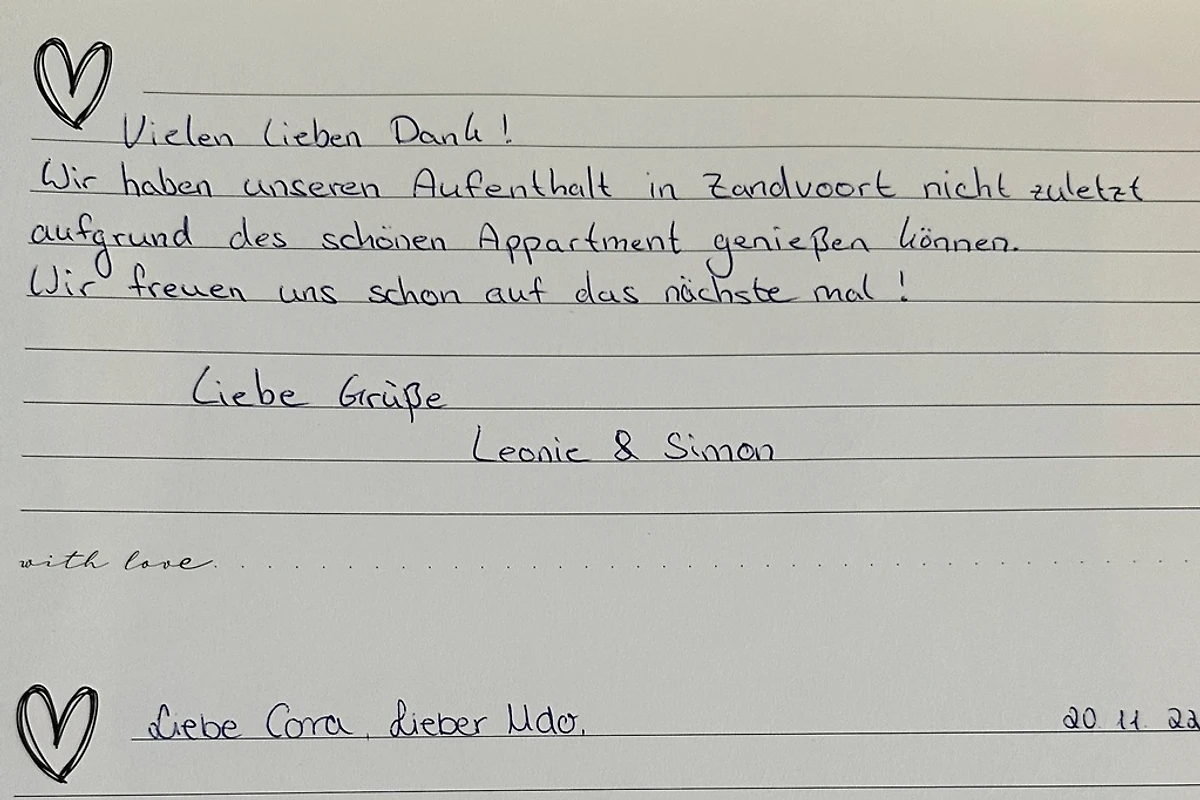 Vielen lieben Dank!
Wir haben unseren Aufenthalt in Zandvoort nicht zuletzt
aufgrund des schönen Appartment genießen können.
Wir freuen uns schon auf das nächste mal!
Liebe Grüße
Leonie & Simon
with love
Liebe Cora, Lieber Udo, 20 11 22